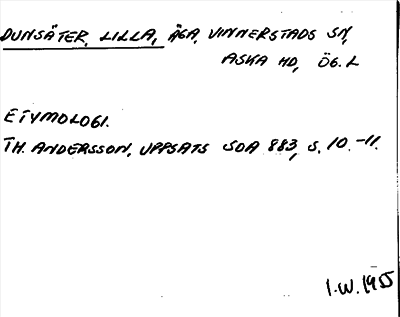 DUNSÄTER, LILLA, ÄGA, VINNERSTADS SN,
ASKA HD, ÖG. L
ETYMOLOGI.
TH. ANDERSSON, UPPSATS SOA 883, S. 10-11.
I.W. 1955